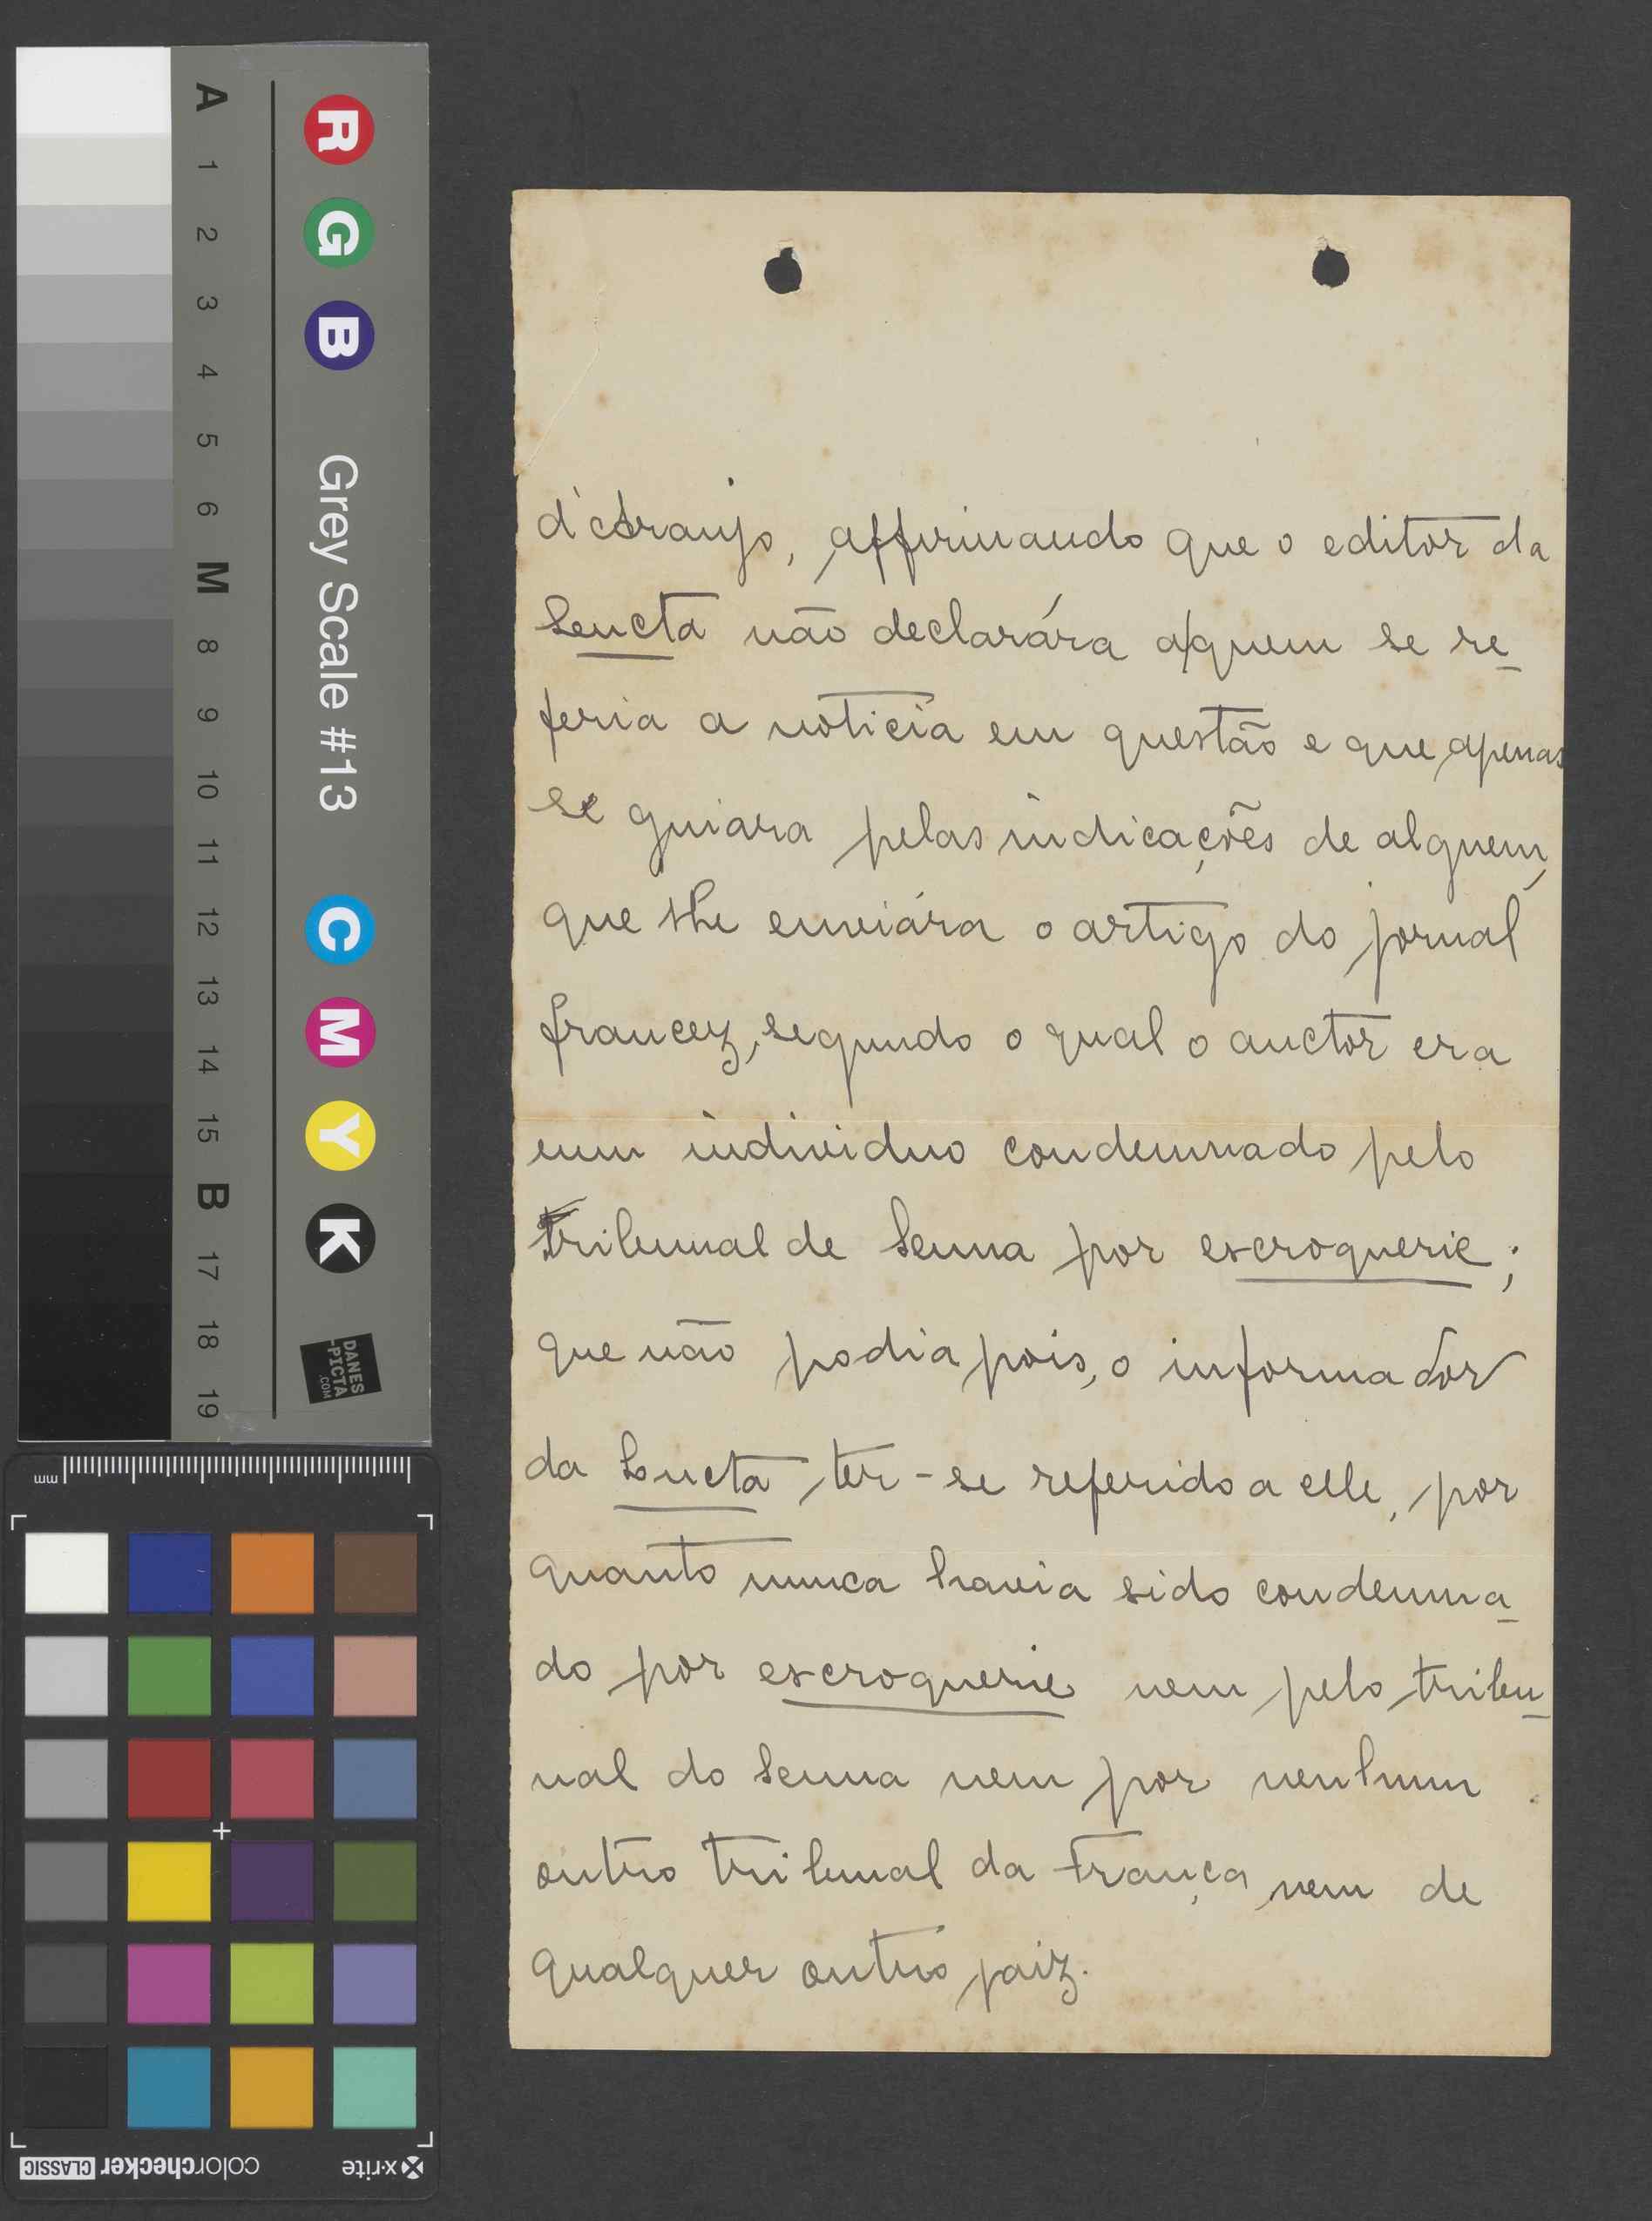 A
1
2
3
4
5
6
M
8
9
10
11
12
13
14
15
B
17
18
19
R G B Grey Scale #13 C M Y K
DANES
-PICTA
.COM
mm
colorchecker CLASSIC
x-rite
d'Araujo, affirmando que o editor da
Lucta não declarára a quem se re-
feria a noticia em questão e que apenas
se guiara pelas indicações de alguem,
que lhe enviára o artigo do jornal
francez, segundo o qual o auctor era
um individuo condemnado pelo
Tribunal de Senna por escroquerie;
que não podia pois, o informador
da Lucta, ter-se referido a elle, por
quanto nunca havia sido condemna-
do por escroquerie nem pelo tribu-
nal do Senna nem por nenhum
outro tribunal da França nem de
qualquer outro paiz.